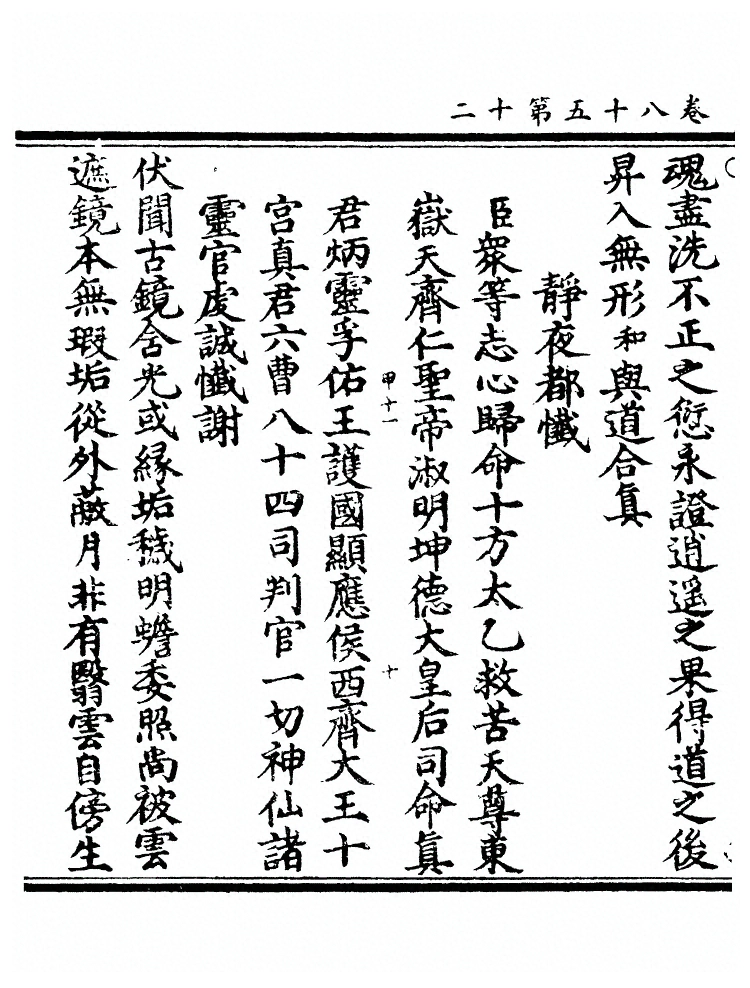 卷八十五第十二
魂盡洗不正之愆永證逍遥之果得道之後
昇入無形和與道合眞
靜夜都懺
臣衆等志心歸命十方太乙救苦天尊東
嶽天齊仁聖帝淑明坤德大皇后司命眞
甲十一
十
君炳靈孚佑王護國顯應侯西齊大王十
宫真君六曹八十四司判官一切神仙諸
靈官虔誠懺謝
伏聞古鏡含光或緣垢穢明蟾委照尚被雲
遮鏡本無瑕垢從外蔽月非有翳雲自傍生